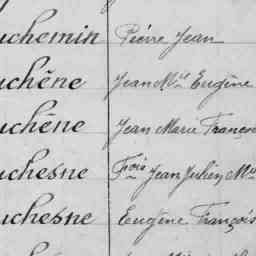 uchemin Pierre Jean
uchêne Jean Mie Eugène
uchêne Jean Marie Franço
uchesne Fois Jean Julien Mi
uchesne Eugène François